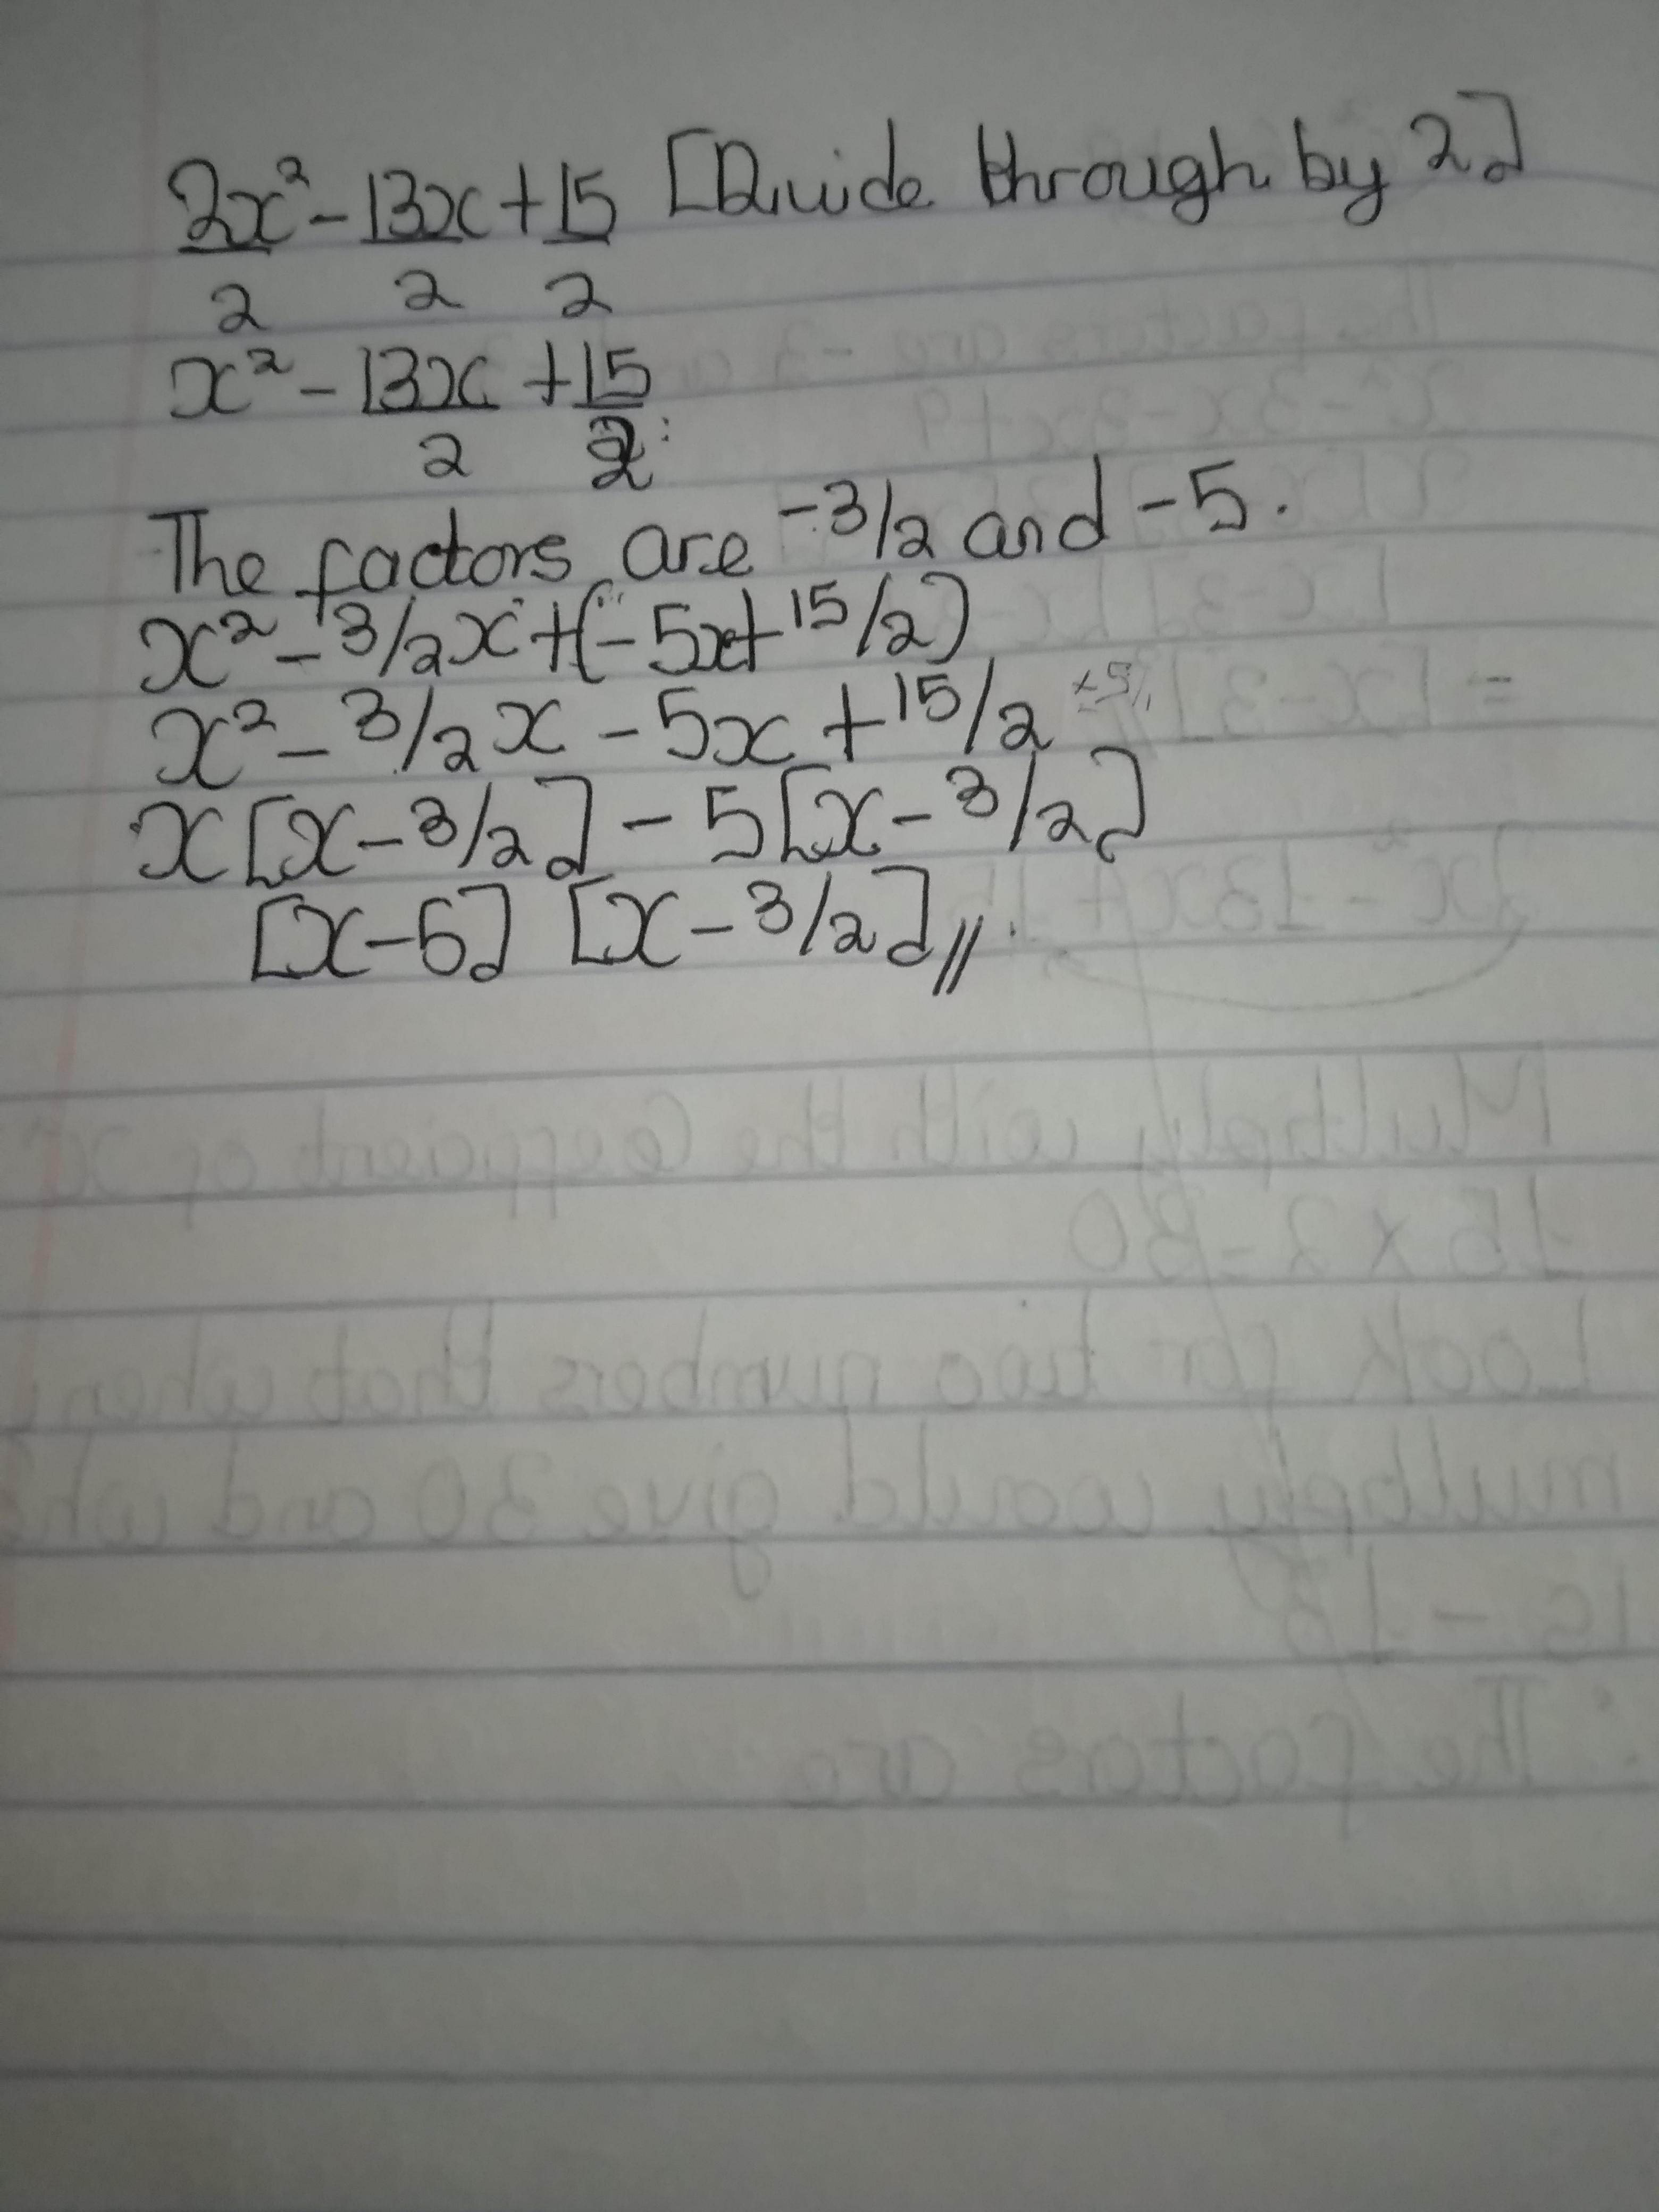 2x² - 13x + 15 [Divide through by 2]
2 2 2
x² - 13x + 15
2 2
The factors are -3/2 and -5.
x² - 3/2x + (-5x + 15/2)
x² - 3/2x - 5x + 15/2
x[x - 3/2] - 5[x - 3/2]
[x - 5] [x - 3/2]//